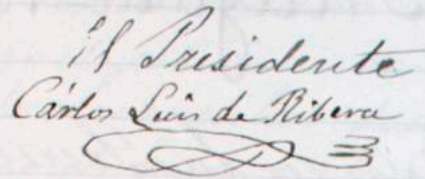 El Presidente
Cárlos Luis de Ribera